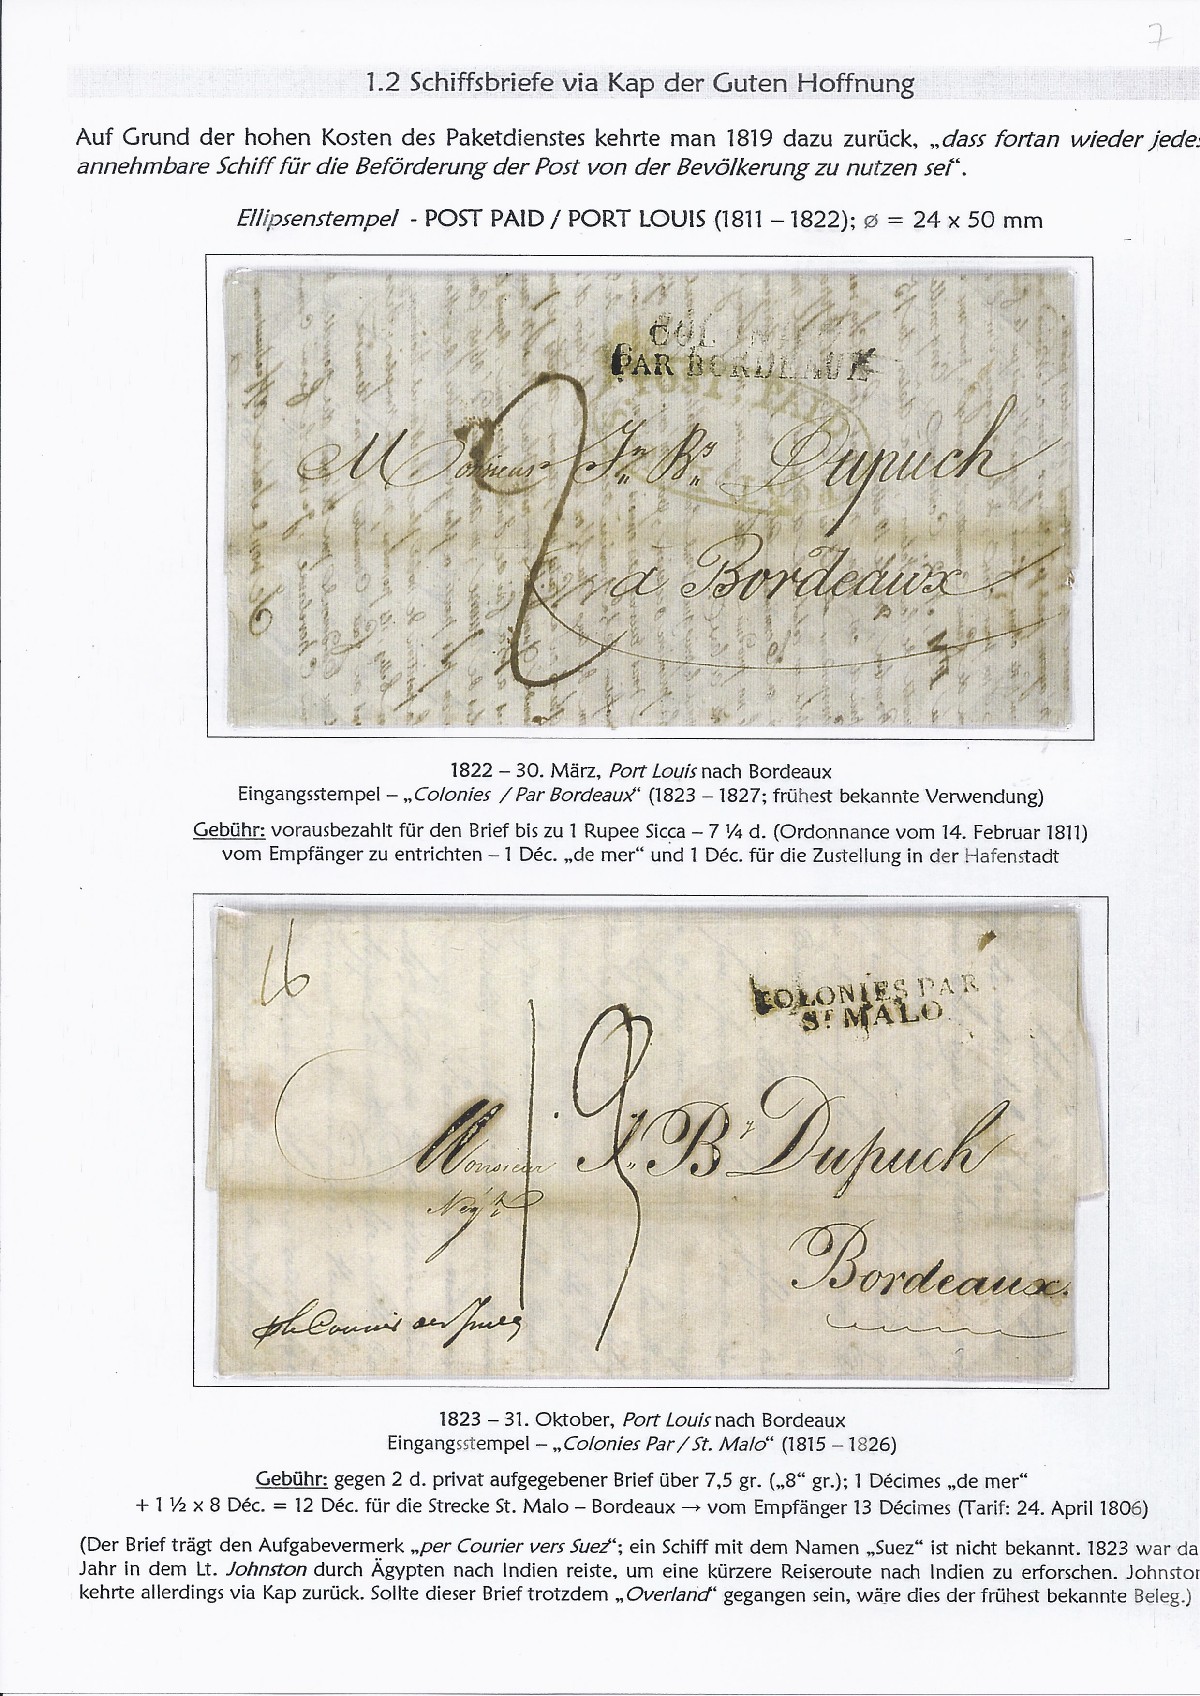 7
1.2 Schiffsbriefe via Kap der Guten Hoffnung
Auf Grund der hohen Kosten des Paketdienstes kehrte man 1819 dazu zurück, „dass fortan wieder jedes
annehmbare Schiff für die Beförderung der Post von der Bevölkerung zu nutzen sei“.
Ellipsenstempel - POST PAID / PORT LOUIS (1811 – 1822); ø = 24 x 50 mm
COL NI
PAR BORDEAUX
POST PAID
Monsieur Jn Bs Dupuch
a Bordeaux
2
1822 – 30. März, Port Louis nach Bordeaux
Eingangsstempel – „Colonies / Par Bordeaux“ (1823 – 1827; frühest bekannte Verwendung)
Gebühr: vorausbezahlt für den Brief bis zu 1 Rupee Sicca – 7 ¼ d. (Ordonnance vom 14. Februar 1811)
vom Empfänger zu entrichten – 1 Déc. „de mer“ und 1 Déc. für die Zustellung in der Hafenstadt
16
COLONIES PAR
ST MALO
13
Monsieur J. B Dupuch
Negt
Bordeaux.
1823 – 31. Oktober, Port Louis nach Bordeaux
Eingangsstempel – „Colonies Par / St. Malo“ (1815 – 1826)
Gebühr: gegen 2 d. privat aufgegebener Brief über 7,5 gr. („8“ gr.); 1 Décimes „de mer“
+ 1 ½ x 8 Déc. = 12 Déc. für die Strecke St. Malo – Bordeaux → vom Empfänger 13 Décimes (Tarif: 24. April 1806)
(Der Brief trägt den Aufgabevermerk „per Courier vers Suez“; ein Schiff mit dem Namen „Suez“ ist nicht bekannt. 1823 war da
Jahr in dem Lt. Johnston durch Ägypten nach Indien reiste, um eine kürzere Reiseroute nach Indien zu erforschen. Johnston
kehrte allerdings via Kap zurück. Sollte dieser Brief trotzdem „Overland“ gegangen sein, wäre dies der frühest bekannte Beleg.)